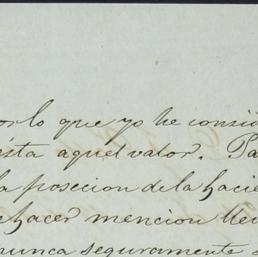 por lo que yo he consi
esta aquel valor. Pa
la posecion de la hacie
hacer mencion lle
nunca seguramente